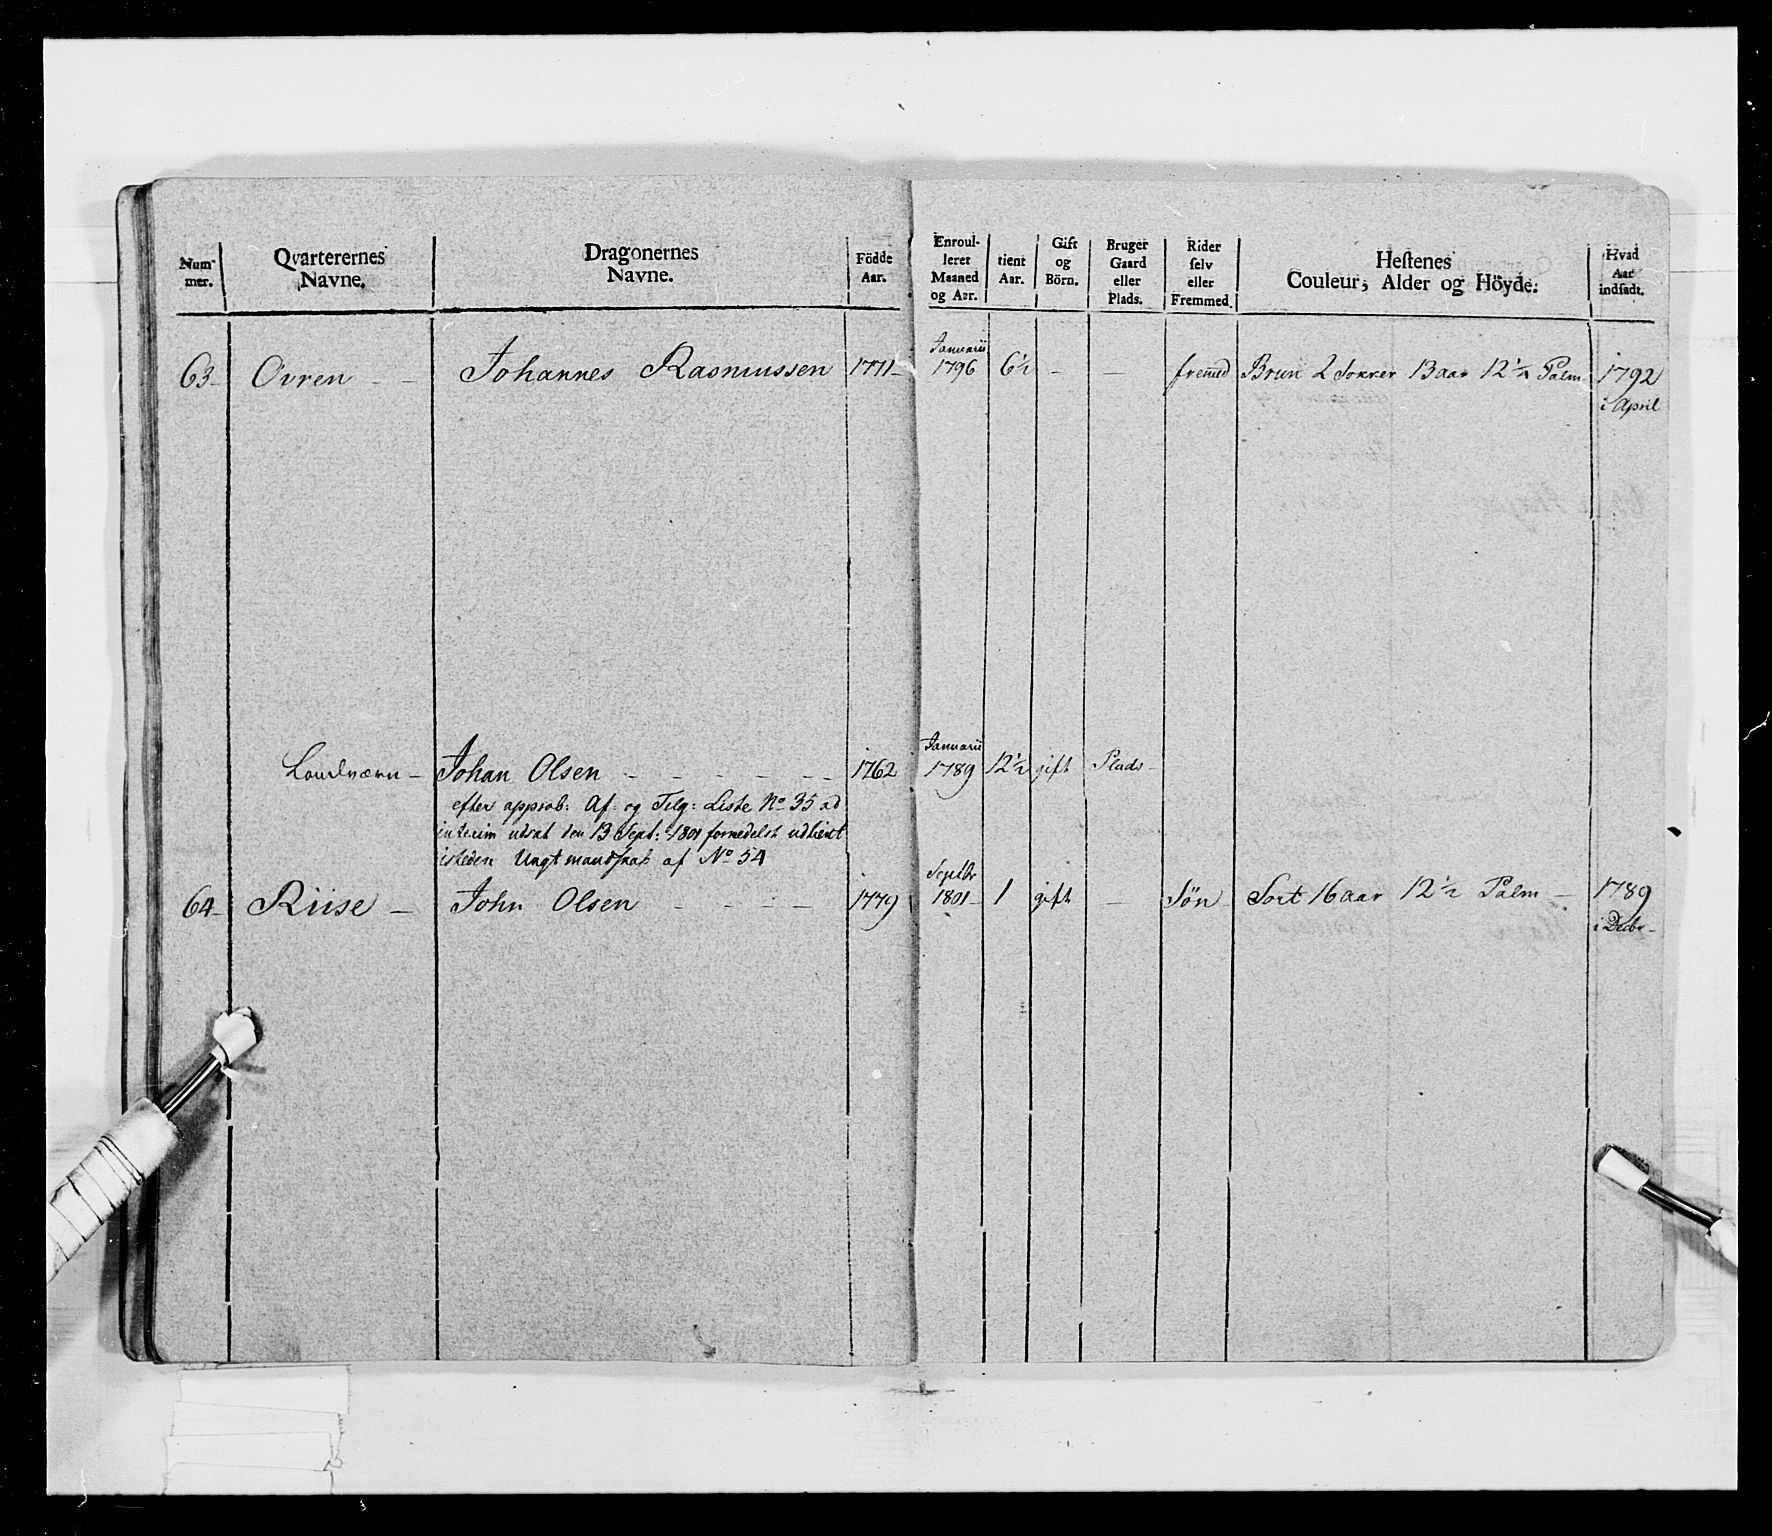 Num-
mer.
Qvarterernes
Navne.
Dragonernes
Navne.
Födde
Aar.
Enroul-
leret
Maaned
og Aar.
tient
Aar.
Gift
og
Börn.
Bruger
Gaard
eller
Plads.
Rider
ſelv
eller
Fremmed.
Heſtenes
Couleur, Alder og Höyde.
Hvad
Aar
indſadt.
Januarii
63 Ovren - - Johannes Rasmussen 1771 1796 6½ - - fremed Bruun 2 Sokker 13 aar 12½ Palm 1792
i April
Januarii
Landværn - Johan Olsen - - - - - - 1762 1789 12½ gift Plads -
efter approb: Af- og Tilg: Liste No 35 ad
interim udsat den 13 Sept: 1801 formedelst udtient
isteden Ungt mandskab af No 54
Septbr
64 Riise - John Olsen - - - - 1779 1801 1 gift - Søn Sort 16 aar 12½ Palm - 1789
i Decbr -